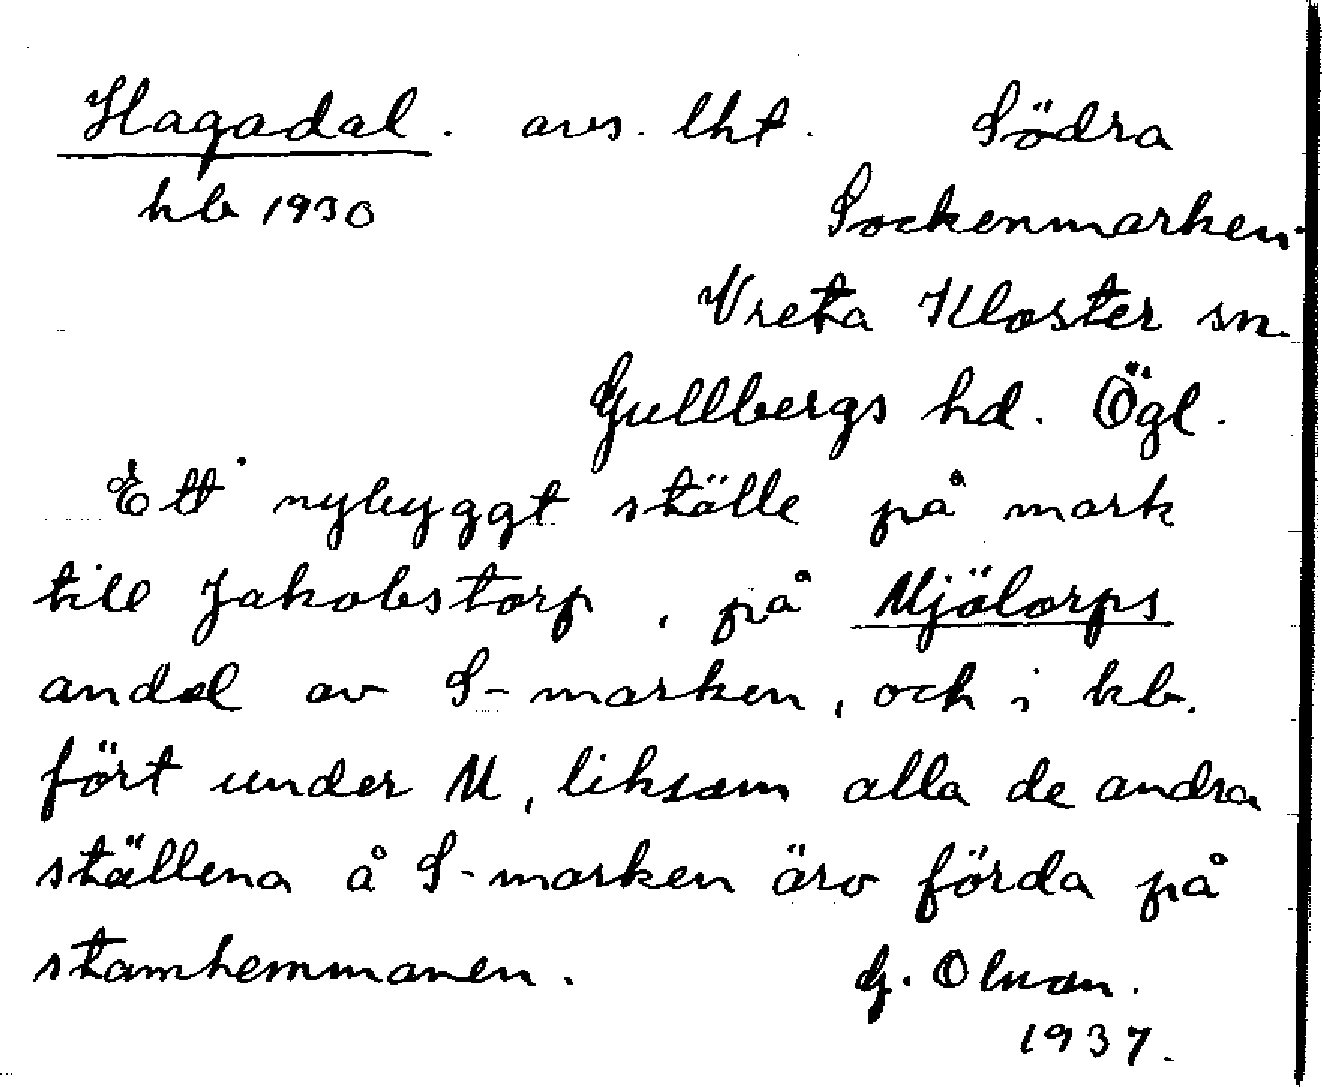 Hagadal. avs. lht. Södra
kb 1930 Sockenmarken
Vreta Kloster sn.
Gullbergs hd. Ögl.
Ett nybyggt ställe på mark
till Jakobstorp, på Mjölorps
andel av S-marken, och i kb.
fört under M, liksom alla de andra
ställena å S-marken äro förda på
stamhemmanen. G.
1937.